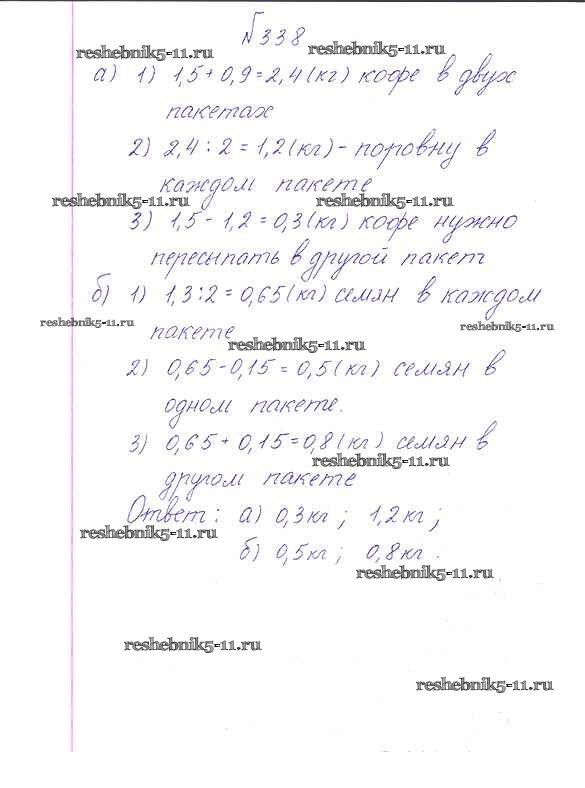 №338
reshebnik5-11.ru reshebnik5-11.ru
а) 1) 1,5 + 0,9 = 2,4 (кг) кофе в двух
пакетах
2) 2,4 : 2 = 1,2 (кг) - поровну в
каждом пакете
reshebnik5-11.ru reshebnik5-11.ru
3) 1,5 - 1,2 = 0,3 (кг) кофе нужно
пересыпать в другой пакет
б) 1) 1,3 : 2 = 0,65 (кг) семян в каждом
reshebnik5-11.ru reshebnik5-11.ru
пакете
reshebnik5-11.ru
2) 0,65 - 0,15 = 0,5 (кг) семян в
одном пакете.
3) 0,65 + 0,15 = 0,8 (кг) семян в
reshebnik5-11.ru
другом пакете
Ответ: а) 0,3 кг; 1,2 кг;
reshebnik5-11.ru
б) 0,5 кг; 0,8 кг.
reshebnik5-11.ru
reshebnik5-11.ru
reshebnik5-11.ru